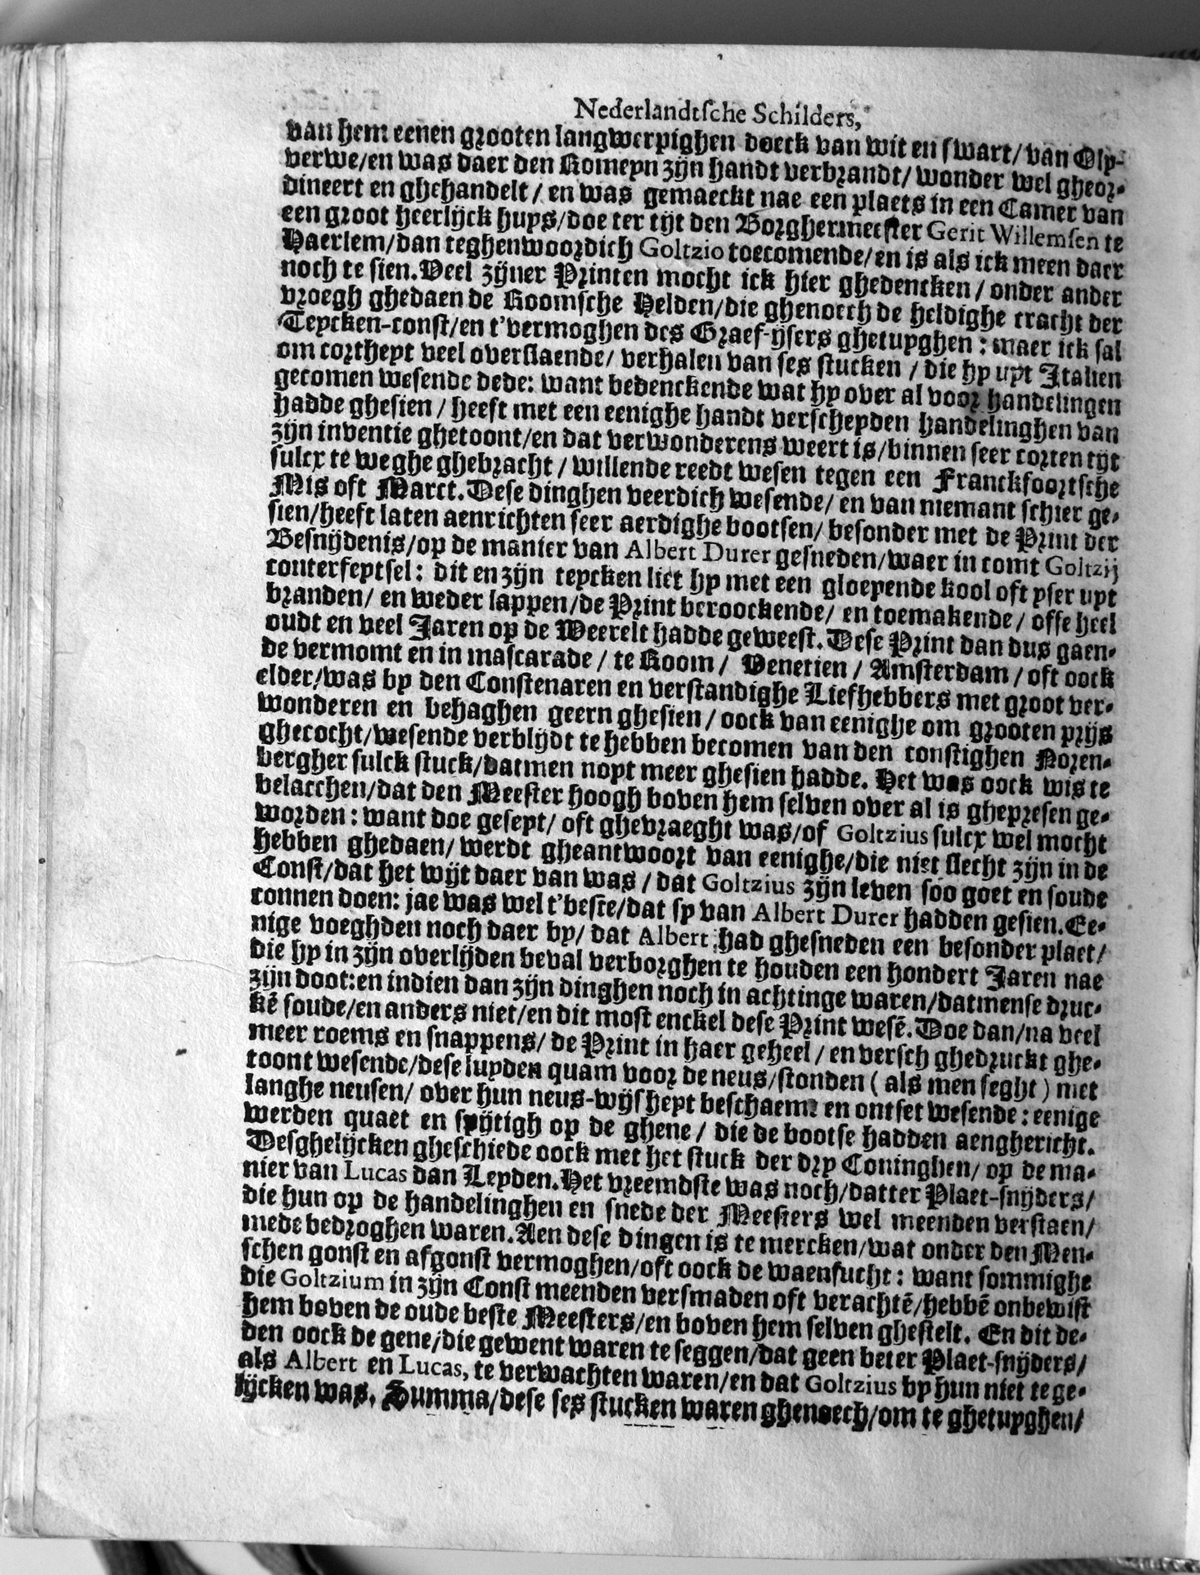 Nederlandtsche Schilders,
van hem eenen grooten langwerpighen doeck van wit en swart/ van Oly-
verwe/ en was daer den Romeyn zijn handt verbrandt/ wonder wel gheor-
dineert en ghehandelt/ en was gemaeckt nae een plaets in een Camer van
een groot heerlijck huys/ doe ter tijt den Borghermeester Gerit Willemsen te
Haerlem/ dan teghenwoordich Goltzio toecomende/ en is als ick meen daer
noch te sien. Veel zijner Printen mocht ick hier ghedencken/ onder ander
vroegh ghedaen de Roomsche Helden/ die ghenoech de heldighe cracht der
Teycken-const/ en t'vermoghen des Graef-ijsers ghetuyghen: waer ick sal
om cortheyt veel overslaende/ verhalen van ses stucken/ die hy uyt Italien
gecomen wesende dede: want bedenckende wat hy over al voor handelingen
hadde ghesien/ heeft met een eenighe handt verscheyden handelinghen van
zijn inventie ghetoont/ en dat verwonderens weert is/ binnen seer corten tijt
sulcx te weghe ghebracht/ willende reedt wesen tegen een Franckfoortsche
Mis oft Marct. Dese dinghen veerdich wesende/ en van niemant schier ge-
sien/ heeft laten aenrichten seer aerdighe bootsen/ besonder met de Print der
Besnijdenis/ op de manier van Albert Durer gesneden/ waer in comt Goltzij
conterfeytsel: dit en zijn teycken liet hy met een gloeyende kool oft yser uyt
branden/ en weder lappen/ de Print beroockende/ en toemakende/ offe heel
oudt en veel Jaren op de Weerelt hadde geweest. Dese Print dan dus gaen-
de vermomt en in mascarade/ te Room/ Venetien/ Amsterdam/ oft oock
elder/ was by den Constenaren en verstandighe Liefhebbers met groot ver-
wonderen en behaghen geern ghesien/ oock van eenighe om grooten prijs
ghecocht/ wesende verblijdt te hebben becomen van den constighen Noren-
bergher sulck stuck/ datmen noyt meer ghesien hadde. Het was oock wis te
belacchen/ dat den Meester hoogh boven hem selven over al is ghepresen ge-
worden: want doe geseyt/ oft ghevraeght was/ of Goltzius sulcx wel mocht
hebben ghedaen/ werdt gheantwoort van eenighe/ die niet slecht zijn in de
Const/ dat het wijt daer van was/ dat Goltzius zijn leven soo goet en soude
connen doen: jae was wel t'beste/ dat sy van Albert Durer hadden gesien. Ee-
nige voeghden noch daer by/ dat Albert had ghesneden een besonder plaet/
die hy in zijn overlijden beval verborghen te houden een hondert Jaren nae
zijn doot: en indien dan zijn dinghen noch in achtinge waren/ datmense druc-
kē soude/ en anders niet/ en dit most enckel dese Print wesē. Doe dan/ na veel
meer roems en snappens/ de Print in haer geheel/ en versch ghedruckt ghe-
toont wesende/ dese luyden quam voor de neus/ stonden (als men seght) met
langhe neusen/ over hun neus-wijsheyt beschaemt en ontset wesende: eenige
werden quaet en spijtigh op de ghene/ die de bootse hadden aenghericht.
Desghelijcken gheschiede oock met het stuck der dry Coninghen/ op de ma-
nier van Lucas van Leyden. Het vreemdste was noch/ datter Plaet-snijders/
die hun op de handelinghen en snede der Meesters wel meenden verstaen/
mede bedroghen waren. Aen dese dingen is te mercken/ wat onder den Men-
schen gonst en afgonst vermoghen/ oft oock de waensucht: want sommighe
die Goltzium in zijn Const meenden versmaden oft verachtē/ hebbē onbewist
hem boven de oude beste Meesters/ en boven hem selven ghestelt. En dit de-
den oock de gene/ die gewent waren te seggen/ dat geen beter Plaet-snijders/
als Albert en Lucas, te verwachten waren/ en dat Goltzius by hun niet te ge-
lijcken was. Summa/ dese ses stucken waren ghenoech/ om te ghetuyghen/